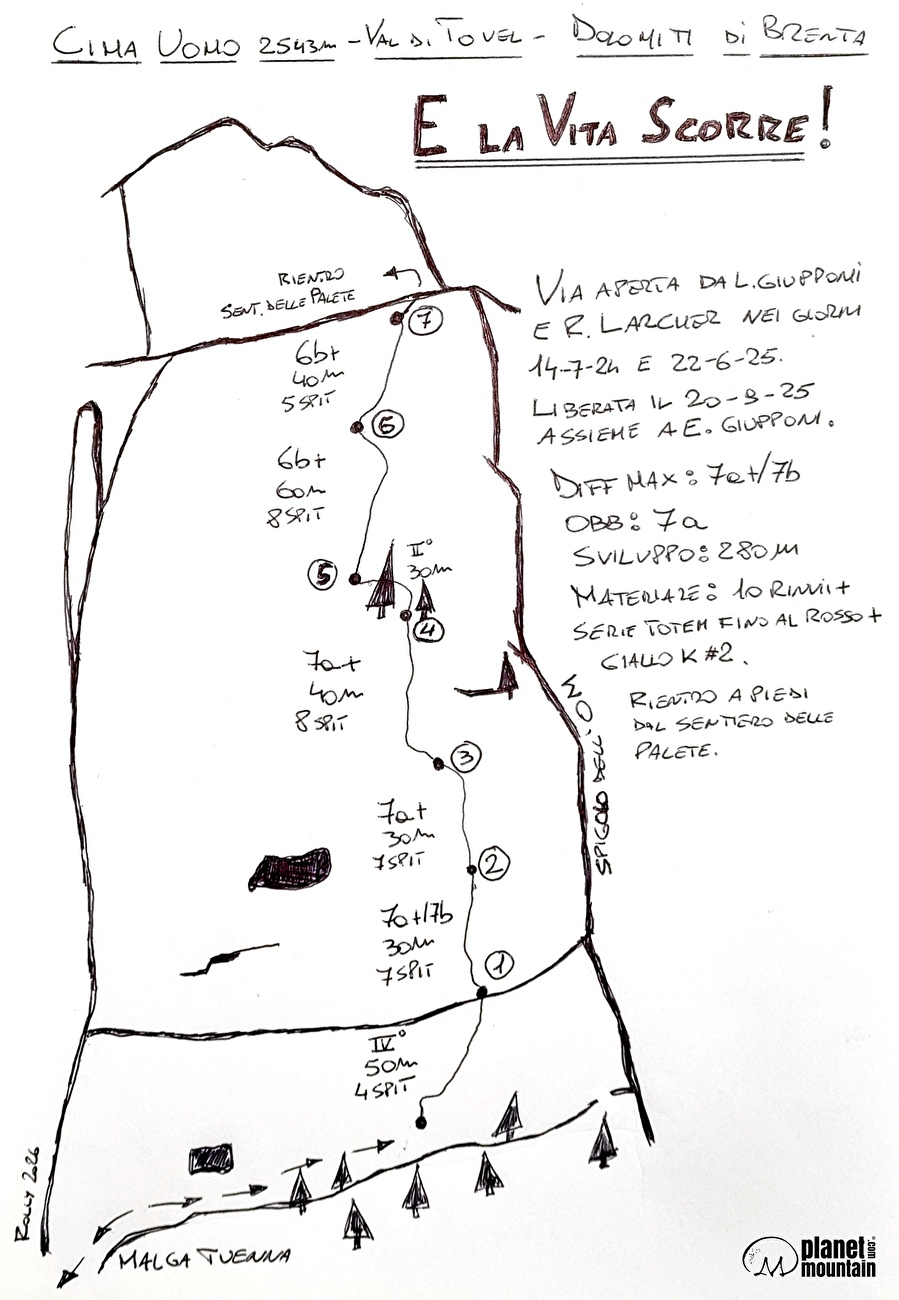 CIMA UOMO 2543m - VAL DI TOVEL - DOLOMITI DI BRENTA
E LA VITA SCORRE!
RIENTRO
SENT. DELLE PALETE
7
6b+
40m
5 SPIT
6
6b+
60m
8 SPIT
5
II°
30m
4
7a+
40m
8 SPIT
3
7a+
30m
7 SPIT
2
7a+/7b
30m
7 SPIT
1
IV°
50m
4 SPIT
VIA APERTA DA L. GIUPPONI
E R. LARCHER NEI GIORNI
14-7-24 E 22-6-25.
LIBERATA IL 20-9-25
ASSIEME A E. GIUPPONI.
DIFF MAX: 7a+/7b
OBB: 7a
SVILUPPO: 280m
MATERIALE: 10 RINVII +
SERIE TOTEM FINO AL ROSSO +
GIALLO K #2.
RIENTRO A PIEDI
DAL SENTIERO DELLE
PALETE.
SPIGOLO DELL'OM
MALGA TUENNA
ROLLY 2026
planet
mountain
.com